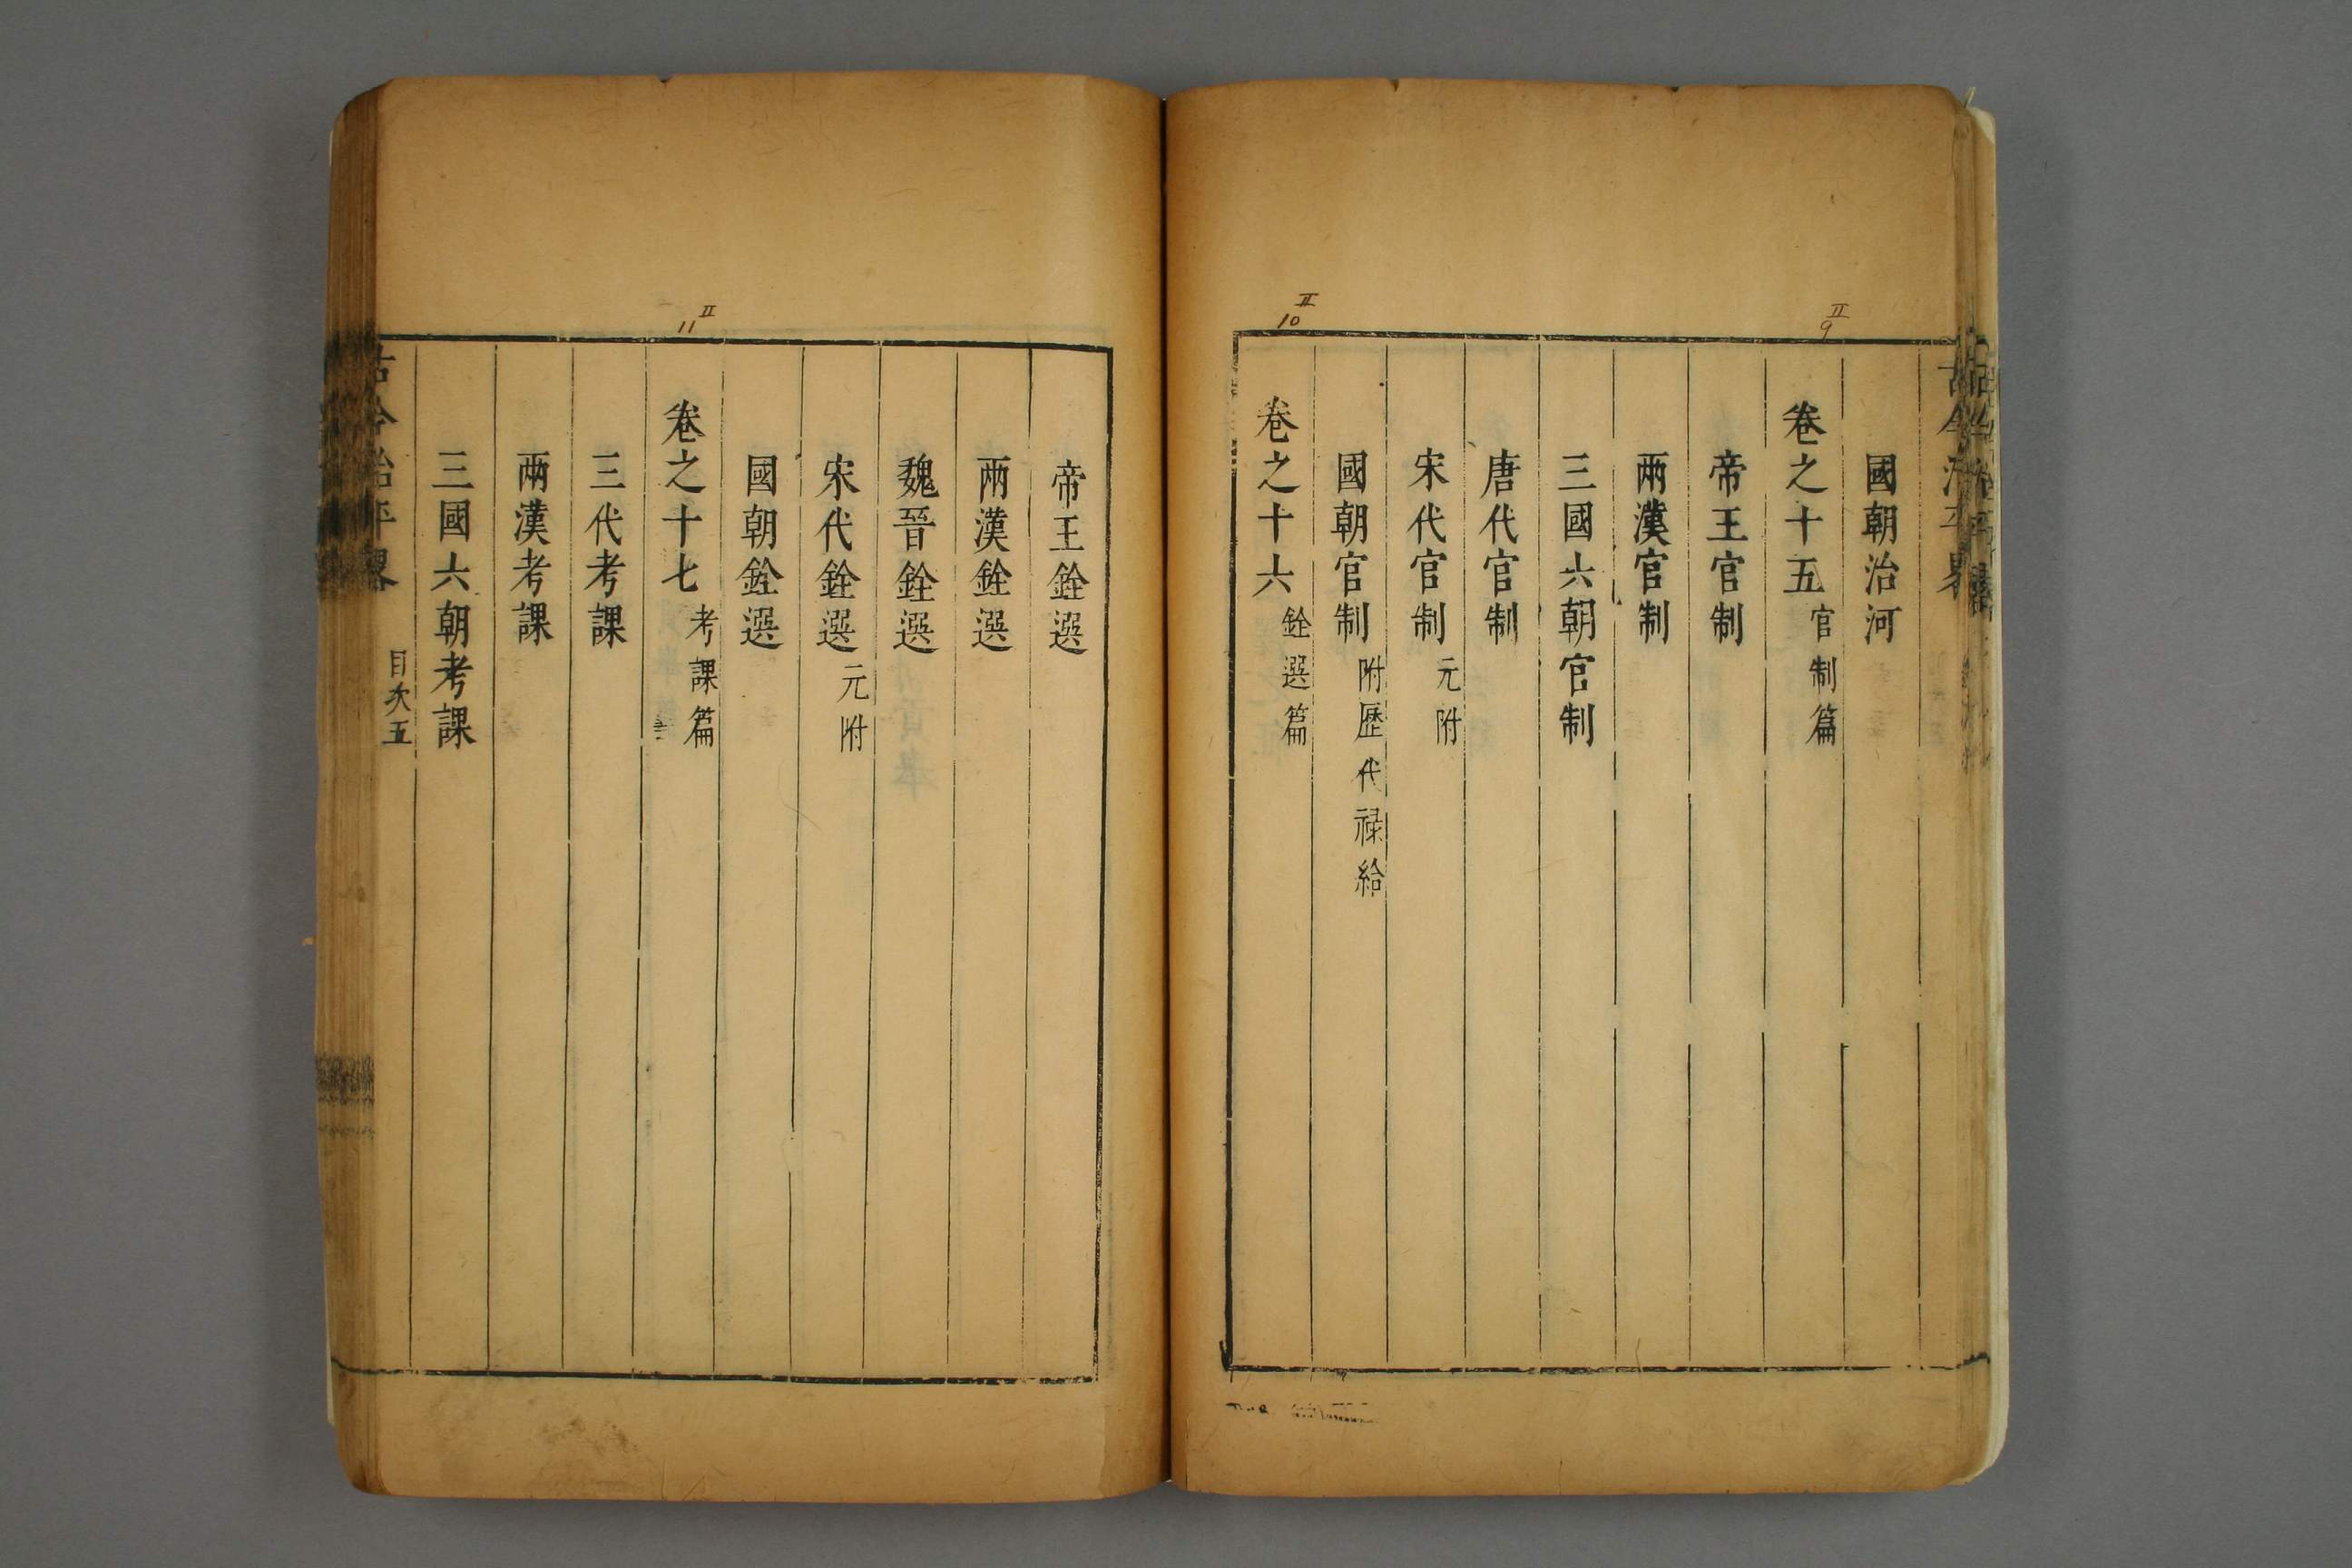 古今治平畧
國朝治河
卷之十五 官制篇
帝王官制
兩漢官制
三國六朝官制
唐代官制
宋代官制 元附
國朝官制 附歷代禄給
卷之十六 銓選篇
帝王銓選
兩漢銓選
魏晉銓選
宋代銓選 元附
國朝銓選
卷之十七 考課篇
三代考課
兩漢考課
三國六朝考課
古今治平畧 目次五
II 9
II 10
II 11